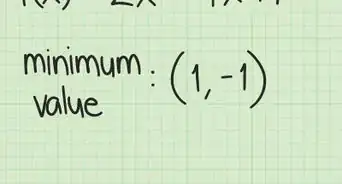 minimum : (1,-1)
value